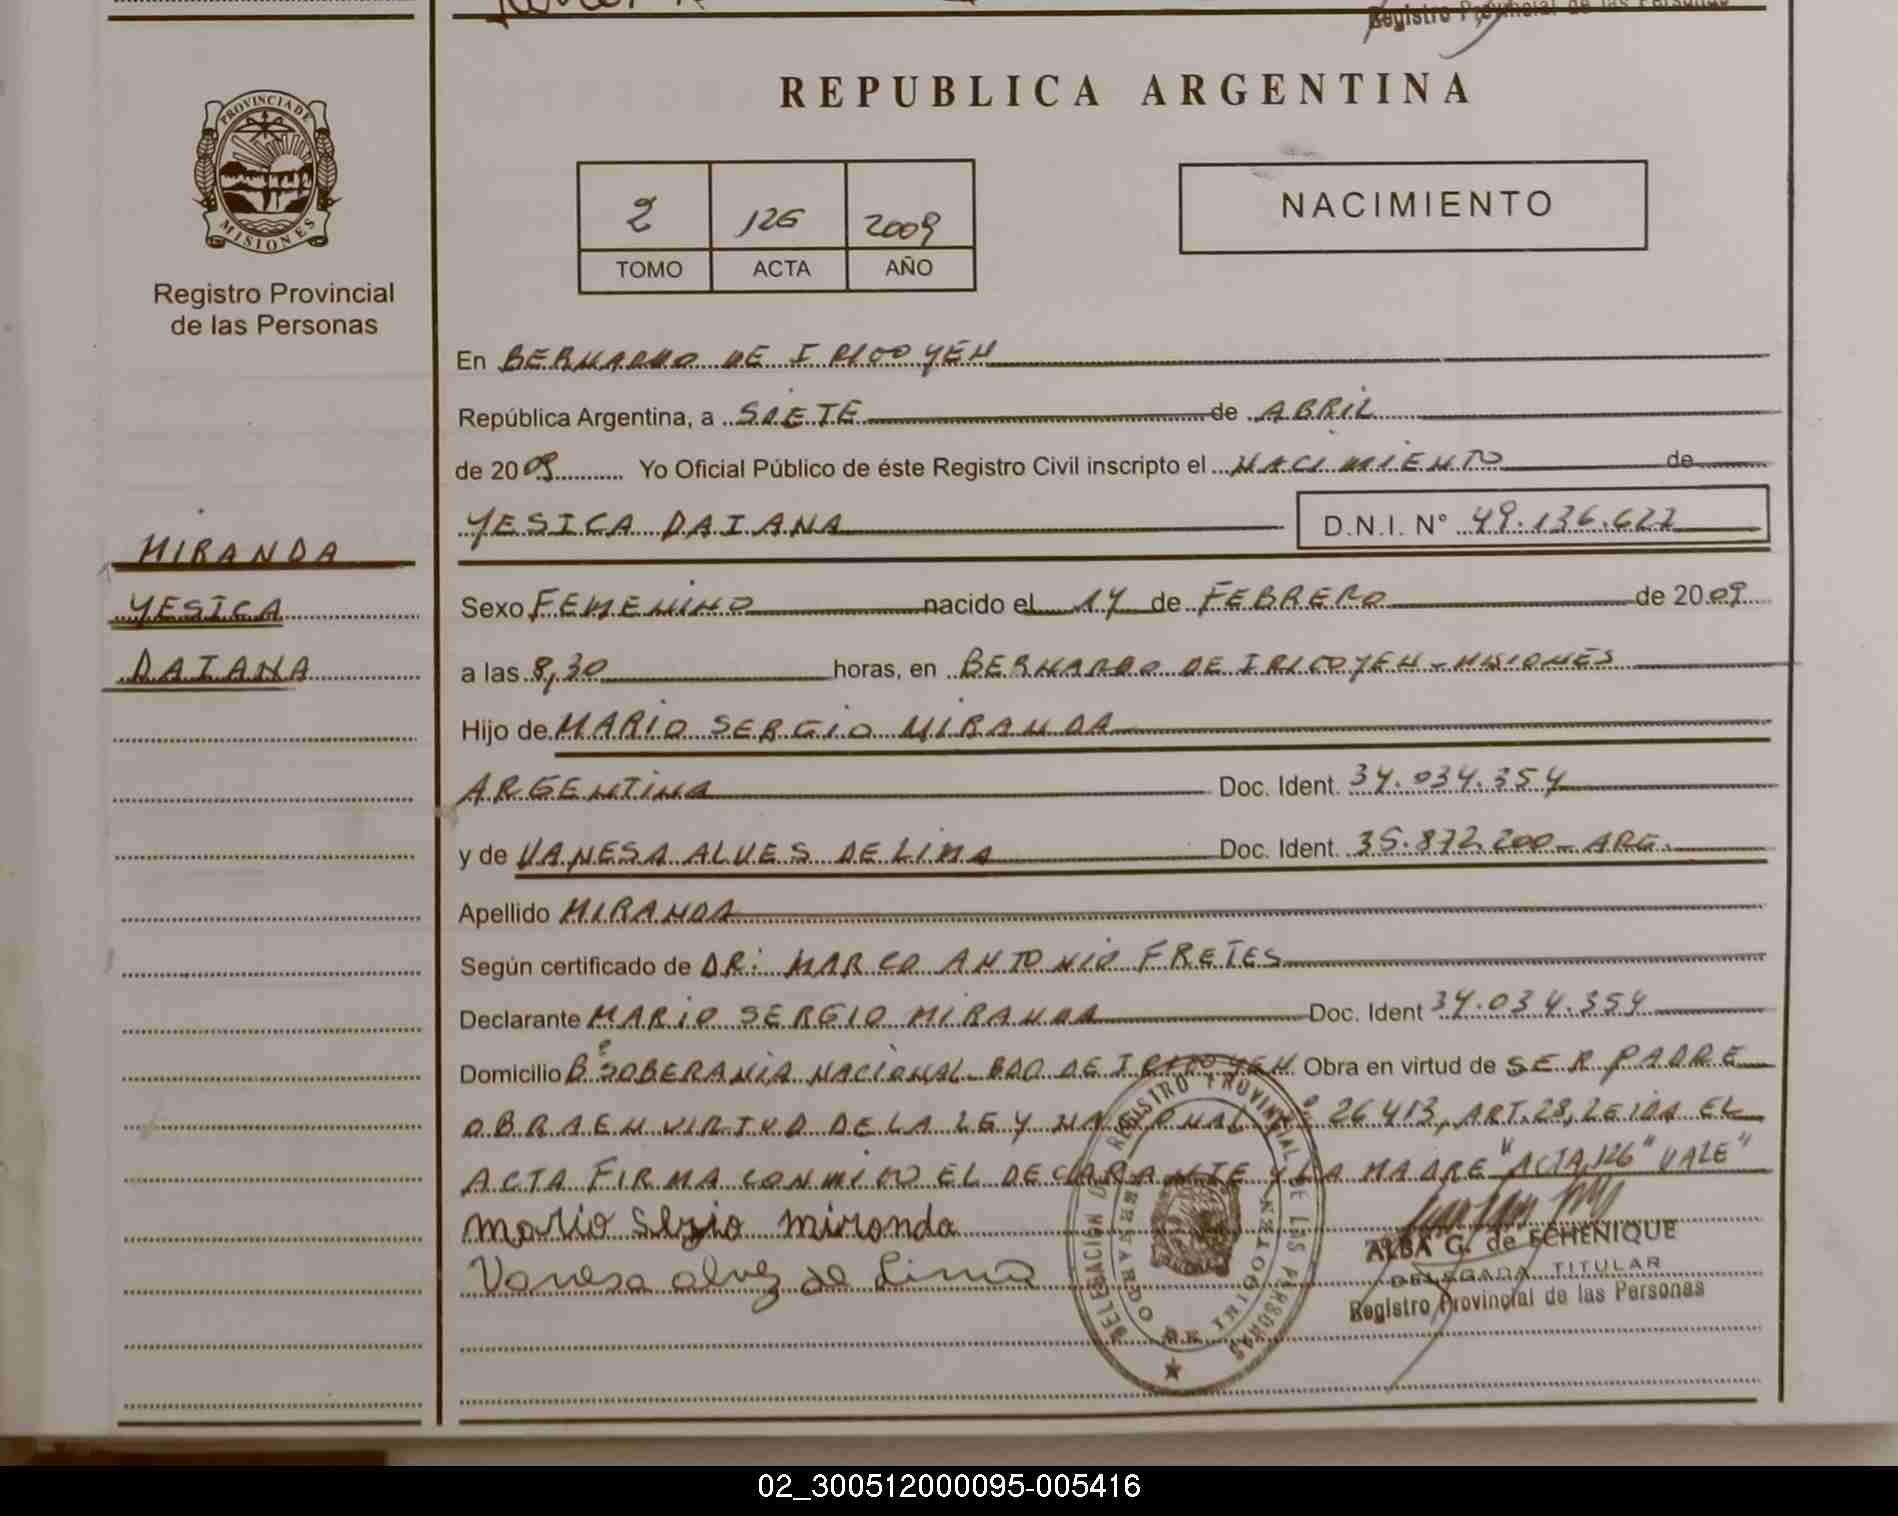 Registro Provincial de las Personas
PROVINCIA DE
MISIONES
Registro Provincial
de las Personas
MIRANDA
YESICA
DAIANA
REPUBLICA ARGENTINA
2 126 2009
TOMO ACTA AÑO
NACIMIENTO
En BERNARDO DE IRIGOYEN
República Argentina, a SIETE de ABRIL
de 2009 Yo Oficial Público de éste Registro Civil inscripto el NACIMIENTO de
YESICA DAIANA D.N.I. N° 49.136.622
Sexo FEMENINO nacido el 14 de FEBRERO de 2009
a las 8,30 horas, en BERNARDO DE IRIGOYEN - MISIONES
Hijo de MARIO SERGIO MIRANDA
ARGENTINA Doc. Ident. 34.034.354
y de VANESA ALVES DE LIMA Doc. Ident. 35.872.200 - ARG.
Apellido MIRANDA
Según certificado de DR: MARCO ANTONIO FRETES
Declarante MARIO SERGIO MIRANDA Doc. Ident 34.034.354
Domicilio B° SOBERANIA NACIONAL BDO DE IRIGOYEN Obra en virtud de SER PADRE
OBRA EN VIRTUD DE LA LEY NACIONAL N° 26413, ART. 28, LEIDA EL
ACTA FIRMA CONMIGO EL DECLARANTE Y LA MADRE "ACTA 126" VALE"
Mario Sergio miranda
Vanesa alvez de Lima
DELEGACIÓN DEL REGISTRO PROVINCIAL DE LAS PERSONAS
BERNARDO DE IRIGOYEN
ALBA G. de ECHENIQUE
DELEGADA TITULAR
Registro Provincial de las Personas
02_300512000095-005416